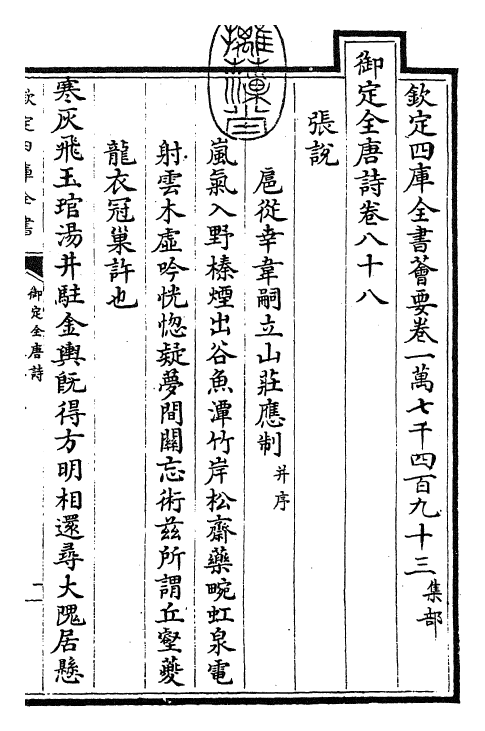 欽定四庫全書薈要卷一萬七千四百九十三 集部
御定全唐詩卷八十八
張說
扈從幸韋嗣立山莊應制 并序
嵐氣入野榛煙出谷魚潭竹岸松齋藥畹虹泉電
射雲木虛吟恍惚疑夢間關忘術兹所謂丘壑夔
龍衣冠巢許也
寒灰飛玉琯湯井駐金輿旣得方明相還尋大隗居懸
欽定四庫全書
御定全唐詩